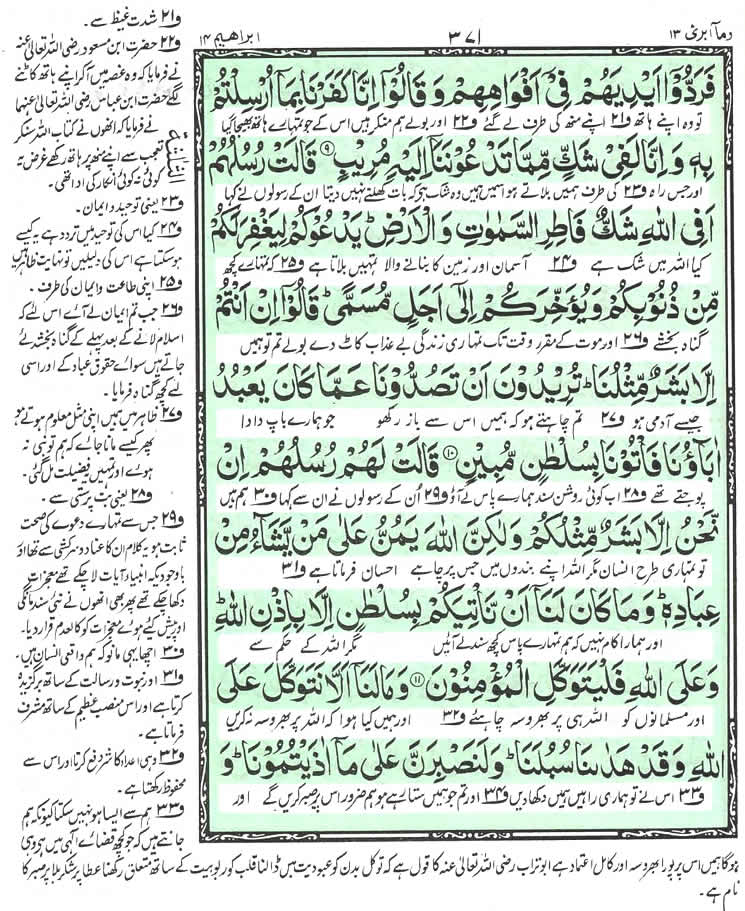 ابراهیم ۱۴
۳۷۱
وما ابرئ ۱۳
فَرَدُّوْۤا اَیْدِیَهُمْ فِیْۤ اَفْوَاهِهِمْ وَ قَالُوْۤا اِنَّا كَفَرْنَا بِمَاۤ اُرْسِلْتُمْ
تو وہ اپنے ہاتھ و۲۱ اپنے منھ کی طرف لے گئے و۲۲ اور بولے ہم منکر ہیں اس کے جو تمہارے ہاتھ بھیجا گیا
بِهٖ وَ اِنَّا لَفِیْ شَكٍّ مِّمَّا تَدْعُوْنَنَاۤ اِلَیْهِ مُرِیْبٍ ۹ قَالَتْ رُسُلُهُمْ
اور جس راہ و۲۳ کی طرف ہمیں بلاتے ہو اس میں ہمیں وہ شک ہے کہ بات کھلنے نہیں دیتا ان کے رسولوں نے کہا
اَفِی اللّٰهِ شَكٌّ فَاطِرِ السَّمٰوٰتِ وَ الْاَرْضِؕ یَدْعُوْكُمْ لِیَغْفِرَ لَكُمْ
کیا اللہ میں شک ہے و۲۴ آسمان اور زمین کا بنانے والا تمہیں بلاتا ہے و۲۵ کہ تمہارے کچھ
مِّنْ ذُنُوْبِكُمْ وَ یُؤَخِّرَكُمْ اِلٰۤى اَجَلٍ مُّسَمًّىؕ قَالُوْۤا اِنْ اَنْتُمْ
گناہ بخشے و۲۶ اور موت کے مقرر وقت تک تمہاری زندگی بے عذاب کاٹ دے بولے تم تو ہمیں
اِلَّا بَشَرٌ مِّثْلُنَاؕ تُرِیْدُوْنَ اَنْ تَصُدُّوْنَا عَمَّا كَانَ یَعْبُدُ
جیسے آدمی ہو و۲۷ تم چاہتے ہو کہ ہمیں اس سے باز رکھو جو ہمارے باپ دادا
اٰبَآؤُنَا فَاْتُوْنَا بِسُلْطٰنٍ مُّبِیْنٍ ۱۰ قَالَتْ لَهُمْ رُسُلُهُمْ اِنْ
پوجتے تھے و۲۸ اب کوئی روشن سند ہمارے پاس لے آؤ و۲۹ اُن کے رسولوں نے ان سے کہا و۳۰ ہم ہیں
نَّحْنُ اِلَّا بَشَرٌ مِّثْلُكُمْ وَ لٰكِنَّ اللّٰهَ یَمُنُّ عَلٰى مَنْ یَّشَآءُ مِنْ
تو تمہاری طرح انسان مگر اللہ اپنے بندوں میں جس پر چاہے احسان فرماتا ہے و۳۱
عِبَادِهٖؕ وَ مَا كَانَ لَنَاۤ اَنْ نَّاْتِیَكُمْ بِسُلْطٰنٍ اِلَّا بِاِذْنِ اللّٰهِؕ
اور ہمارا کام نہیں کہ ہم تمہارے پاس کچھ سند لے آئیں مگر اللہ کے حکم سے
وَ عَلَى اللّٰهِ فَلْیَتَوَكَّلِ الْمُؤْمِنُوْنَ ۱۱ وَ مَا لَنَاۤ اَلَّا نَتَوَكَّلَ عَلَى
اور مسلمانوں کو اللہ ہی پر بھروسہ چاہئے و۳۲ اور ہمیں کیا ہوا کہ اللہ پر بھروسہ نہ کریں
اللّٰهِ وَ قَدْ هَدٰىنَا سُبُلَنَاؕ وَ لَنَصْبِرَنَّ عَلٰى مَاۤ اٰذَیْتُمُوْنَاؕ وَ
و۳۳ اس نے تو ہماری راہیں ہمیں دکھا دیں و۳۴ اور تم جو ہمیں ستا رہے ہو ہم ضرور اس پر صبر کریں گے اور
و۲۱ شدت غیظ سے۔
و۲۲ حضرت ابن مسعود رضی اللہ تعالٰی عنہ
نے فرمایا کہ وہ غصہ میں آکر اپنے ہاتھ کاٹنے
لگے حضرت ابن عباس رضی اللہ تعالٰی عنہما
نے فرمایا کہ انھوں نے کتاب اللہ سنکر
تعجب سے اپنے منھ پر ہاتھ رکھے غرض یہ
کوئی نہ کوئی انکار کی ادا تھی۔
و۲۳ یعنی توحید و ایمان۔
و۲۴ کیا اس کی توحید میں تردد ہے یہ کیسے
ہو سکتا ہے اس کی دلیلیں تو نہایت ظاہر ہیں
و۲۵ اپنی طاعت و ایمان کی طرف۔
و۲۶ جب تم ایمان لے آؤ اس لئے کہ
اسلام لانے کے بعد پہلے کے گناہ بخشدیئے
جاتے ہیں سوائے حقوق عباد کے اور اسی
لئے کچھ گناہ فرمایا۔
و۲۷ ظاہر میں ہمیں اپنی مثل معلوم ہوتے ہو
پھر کیسے مانا جائے کہ ہم تو نبی نہ
ہوئے اور تمہیں فضیلت مل گئی۔
و۲۸ یعنی بت پرستی سے۔
و۲۹ جس سے تمہارے دعوے کی صحت
ثابت ہو یہ کلام ان کا عناد و سرکشی سے تھا اور
باوجودیکہ انبیاء آیات لا چکے تھے معجزات
دکھا چکے تھے پھر بھی انھوں نے نئی سند مانگی
اور پیش کئے ہوئے معجزات کو کالعدم قرار دیا۔
و۳۰ اچھا یہی مانو کہ ہم واقعی انسان ہیں۔
و۳۱ اور نبوت و رسالت کے ساتھ برگزیدہ
کرتا ہے اور اس منصب عظیم کے ساتھ مشرف
فرماتا ہے۔
و۳۲ وہی اعداء کا شر دفع کرتا اور اس سے
محفوظ رکھتا ہے۔
و۳۳ ہم سے ایسا ہو نہیں سکتا کیونکہ ہم
جانتے ہیں کہ جو کچھ قضائے الٰہی میں ہے وہی
ہوگا ہمیں اس پر پورا بھروسہ اور کامل اعتماد ہے ابو تراب رضی اللہ تعالٰی عنہ کا قول ہے کہ توکل بدن کو عبودیت میں ڈالنا قلب کو ربوبیت کے ساتھ متعلق رکھنا عطا پر شکر بلا پر صبر کا
نام ہے۔